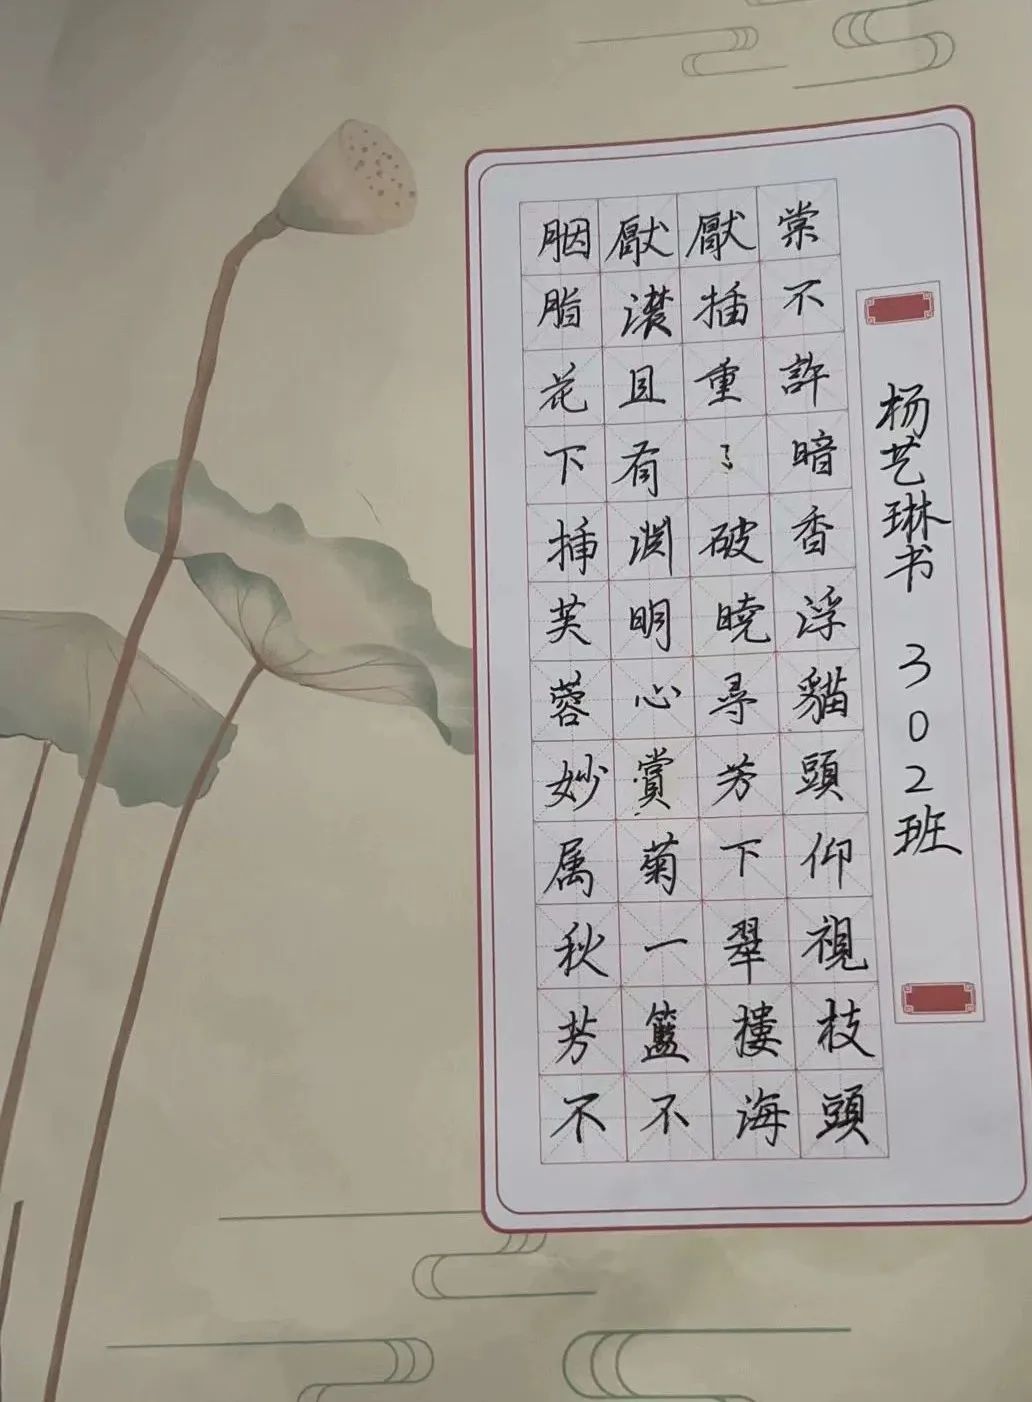 胭脂花下插芙蓉妙属秋芳不
厭濃且有淵明心賞菊一籃不
厭插重〻破曉尋芳下翠樓海
棠不許暗香浮貓頭仰視枝頭
杨艺琳书 302班